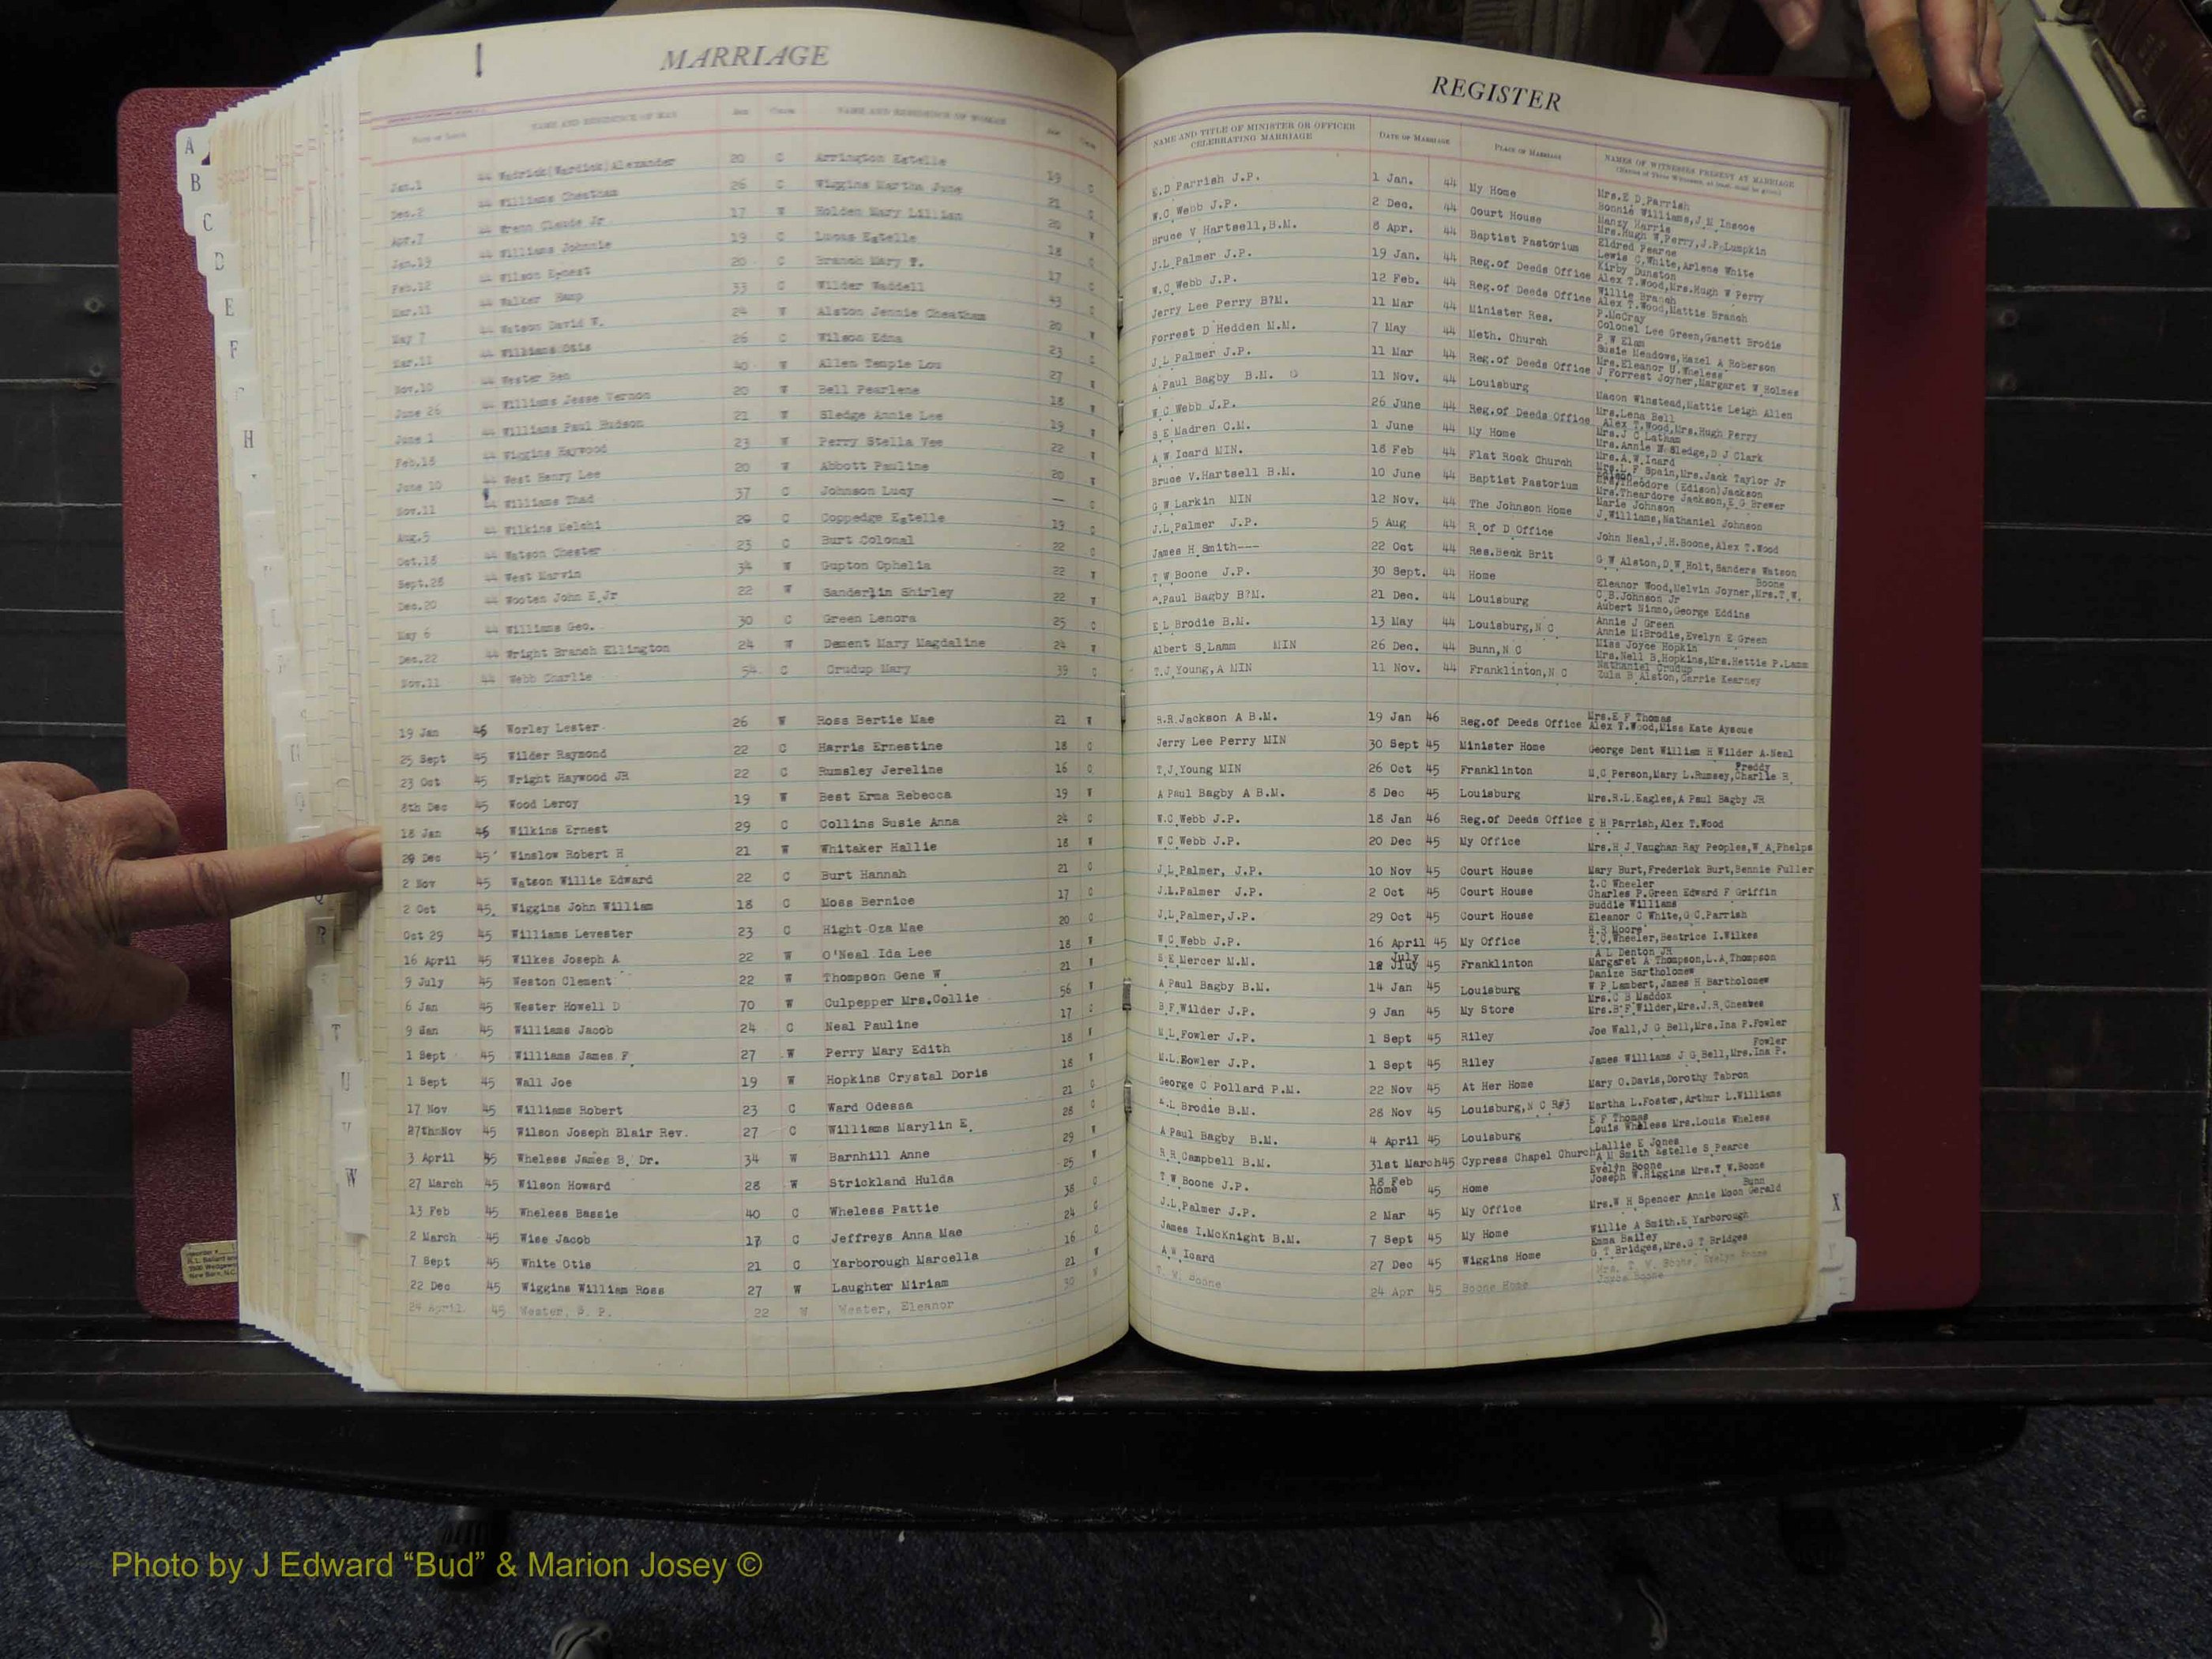 MARRIAGE
REGISTER
NAME AND RESIDENCE OF MAN
NAME AND RESIDENCE OF WOMAN
NAME AND TITLE OF MINISTER OR OFFICER CELEBRATING MARRIAGE
DATE OF MARRIAGE
PLACE OF MARRIAGE
NAMES OF WITNESSES PRESENT AT MARRIAGE
Jan.1 44 Wadrick(Wardick)Alexander 20 C Arrington Estelle 19 C E.D Parrish J.P. 1 Jan. 44 My Home Mrs.E D Parrish
Dec.2 44 Williams Cheatham 26 C Wiggins Martha June 21 C W.C Webb J.P. 2 Dec. 44 Court House Bonnie Williams,J M Inscoe
Nanzy Harris
Apr.7 44 Wrenn Claude Jr 17 W Holden Mary Lillian 20 W Bruce V Hartsell,B.M. 8 Apr. 44 Baptist Pastorium Mrs.Hugh W Perry,J.P.Lumpkin
Eldred Pearce
Jan.19 44 Williams Johnnie 19 C Lucas Estelle 18 C J.L Palmer J.P. 19 Jan. 44 Reg.of Deeds Office Lewis C.White,Arlene White
Kirby Dunston
Feb.12 44 Wilson Ernest 20 C Branch Mary T. 17 C W.C Webb J.P. 12 Feb. 44 Reg.of Deeds Office Alex T.Wood,Mrs.Hugh W Perry
Willie Branch
Mar.11 44 Walker Hamp 33 C Wilder Waddell 43 C Jerry Lee Perry B?M. 11 Mar 44 Minister Res. Alex T.Wood,Mattie Branch
P.McCray
May 7 44 Watson David W. 24 W Alston Jennie Cheatham 20 W Forrest D Hedden M.M. 7 May 44 Meth. Church Colonel Lee Green,Ganett Brodie
P W Elam
Mar.11 44 Williams Otis 26 C Wilson Edna 23 C J L Palmer J.P. 11 Mar 44 Reg.of Deeds Office Susie Meadows,Hazel A Roberson
Mrs.Eleanor U.Wheless
Nov.10 44 Wester Ben 40 W Allen Temple Lou 27 W A Paul Bagby B.M. 11 Nov. 44 Louisburg J Forrest Joyner,Margaret W Holmes
Macon Winstead,Mattie Leigh Allen
June 26 44 Williams Jesse Vernon 20 W Bell Pearlene 18 W W C Webb J.P. 26 June 44 Reg.of Deeds Office Mrs.Lena Bell
Alex T.Wood,Mrs.Hugh Perry
June 1 44 Williams Paul Hudson 21 W Sledge Annie Lee 19 W S E Madren C.M. 1 June 44 My Home Mrs.J C Latham
Mrs.Annie W Sledge,D J Clark
Feb.18 44 Wiggins Haywood 23 W Perry Stella Vee 22 W A W Icard MIN. 18 Feb 44 Flat Rock Church Mrs.A.W Icard
June 10 44 West Henry Lee 20 W Abbott Pauline 20 W Bruce V.Hartsell B.M. 10 June 44 Baptist Pastorium Mrs.L F Spain,Mrs.Jack Taylor Jr
Mrs.Theodore (Edison)Jackson
Nov.11 44 Williams Thad 37 C Johnson Lucy — C G W Larkin MIN 12 Nov. 44 The Johnson Home Mrs.Theardore Jackson,E G Brewer
Marie Johnson
J Williams,Nathaniel Johnson
Aug.5 44 Wilkins Melchi 20 C Coppedge Estelle 19 C J.L Palmer J.P. 5 Aug 44 R of D Office John Neal,J.H.Boone,Alex T.Wood
Oct.18 44 Watson Chester 23 C Burt Colonal 22 C James H Smith--- 22 Oct 44 Res.Beck Brit G W Alston,D W Holt,Sanders Watson
Sept.28 44 West Marvin 34 W Gupton Ophelia 22 W T W Boone J.P. 30 Sept. 44 Home Eleanor Wood,Melvin Joyner,Mrs.T W. Boone
Dec.20 44 Wooten John E Jr 22 W Sanderlin Shirley 22 W A.Paul Bagby B?M. 21 Dec. 44 Louisburg C B.Johnson Jr
Aubert Nimmo,George Eddins
May 6 44 Williams Geo. 30 C Green Lenora 25 C E L Brodie B.M. 13 May 44 Louisburg,N C Annie J Green
Annie M:Brodie,Evelyn E Green
Dec.22 44 Wright Branch Ellington 24 W Dement Mary Magdaline 24 W Albert S Lamm MIN 26 Dec. 44 Bunn,N C Miss Joyce Hopkin
Mrs.Nell B.Hopkins,Mrs.Hettie P.Lamm
Nov.11 44 Webb Charlie 54 C Crudup Mary 39 C T.J Young,A MIN 11 Nov. 44 Franklinton,N C Nathaniel Crudup
Zula B Alston,Carrie Kearney
19 Jan 46 Worley Lester 26 W Ross Bertie Mae 21 W H.R.Jackson A B.M. 19 Jan 46 Reg.of Deeds Office Mrs.E F Thomas
Alex T.Wood,Miss Kate Ayscue
25 Sept 45 Wilder Raymond 22 C Harris Ernestine 18 C Jerry Lee Perry MIN 30 Sept 45 Minister Home George Dent William H Wilder A.Neal
23 Oct 45 Wright Haywood JR 22 C Rumsley Jereline 16 C T.J Young MIN 26 Oct 45 Franklinton M.C Person,Mary L.Rumsey,Charlie R. Freddy
8th Dec 45 Wood Leroy 19 W Best Erma Rebecca 19 W A Paul Bagby A B.M. 8 Dec 45 Louisburg Mrs.R.L.Eagles,A Paul Bagby JR
18 Jan 46 Wilkins Ernest 29 C Collins Susie Anna 24 C W.C Webb J.P. 18 Jan 46 Reg.of Deeds Office E H Parrish,Alex T.Wood
20 Dec 45 Winslow Robert H 21 W Whitaker Hallie 18 W W C Webb J.P. 20 Dec 45 My Office Mrs.H J Vaughan Ray Peoples,W A Phelps
2 Nov 45 Watson Willie Edward 22 C Burt Hannah 21 C J L Palmer, J.P. 10 Nov 45 Court House Mary Burt,Frederick Burt,Bennie Fuller
2 Oct 45 Wiggins John William 18 C Moss Bernice 17 C J.L.Palmer J.P. 2 Oct 45 Court House Z.C Wheeler
Charles P.Green Edward F Griffin
Oct 29 45 Williams Levester 23 C Hight Oza Mae 20 C J.L Palmer,J.P. 29 Oct 45 Court House Buddie Williams
Eleanor C White,G C.Parrish
16 April 45 Wilkes Joseph A 22 W O'Neal Ida Lee 18 W W C Webb J.P. 16 April 45 My Office H.R Moore
Z.C.Wheeler,Beatrice I.Wilkes
9 July 45 Weston Clement 22 W Thompson Gene W 21 W S E Mercer M.M. 12 July 45 Franklinton A L Denton JR
Margaret A Thompson,L.A Thompson
6 Jan 45 Wester Howell D 70 W Culpepper Mrs.Collie 56 W A Paul Bagby B.M. 14 Jan 45 Louisburg Danize Bartholomew
W P Lambert,James H Bartholomew
9 Jan 45 Williams Jacob 24 C Neal Pauline 17 C B F Wilder J.P. 9 Jan 45 My Store Mrs.C B Maddox
Mrs.B F Wilder,Mrs.J.R.Cheaves
1 Sept 45 Williams James F. 27 W Perry Mary Edith 18 W M.L Fowler J.P. 1 Sept 45 Riley Joe Wall,J G Bell,Mrs.Ina P.Fowler
1 Sept 45 Wall Joe 19 W Hopkins Crystal Doris 18 W M.L.Fowler J.P. 1 Sept 45 Riley James Williams J G Bell,Mrs.Ina P. Fowler
17 Nov 45 Williams Robert 23 C Ward Odessa 21 C George C Pollard P.M. 22 Nov 45 At Her Home Mary O.Davis,Dorothy Tabron
27thNov 45 Wilson Joseph Blair Rev. 27 C Williams Marylin E. 28 C E.L Brodie B.M. 28 Nov 45 Louisburg,N C R#3 Martha L.Foster,Arthur L.Williams
3 April 45 Wheless James B. Dr. 34 W Barnhill Anne 29 W A Paul Bagby B.M. 4 April 45 Louisburg E F Thomas
Louis Wheless Mrs.Louis Wheless
27 March 45 Wilson Howard 28 W Strickland Hulda 25 W R R Campbell B.M. 31st March45 Cypress Chapel Church Lallie E Jones
A M Smith Estelle S Pearce
13 Feb 45 Wheless Bassie 40 C Wheless Pattie 38 C T W Boone J.P. 18 Feb 45 Home Evelyn Boone
Joseph W.Higgins Mrs.T W.Boone
2 March 45 Wise Jacob 17 C Jeffreys Anna Mae 24 C J.L Palmer J.P. 2 Mar 45 My Office Mrs.W H Spencer Annie Moon Gerald Bunn
7 Sept 45 White Otis 21 C Yarborough Marcella 16 C James I.McKnight B.M. 7 Sept 45 My Home Willie A Smith.E Yarborough
Emma Bailey
22 Dec 45 Wiggins William Ross 27 W Laughter Miriam 21 W A W Icard 27 Dec 45 Wiggins Home G T Bridges,Mrs.G T Bridges
24 April 45 Wester, S. P. 22 W Wester, Eleanor 30 W T. W. Boone 24 Apr 45 Boone Home Mrs. T. W. Boone, Evelyn Boone
Joyce Boone
A
B
C
D
E
F
H
Q
R
T
U
V
W
X
Photo by J Edward “Bud” & Marion Josey ©